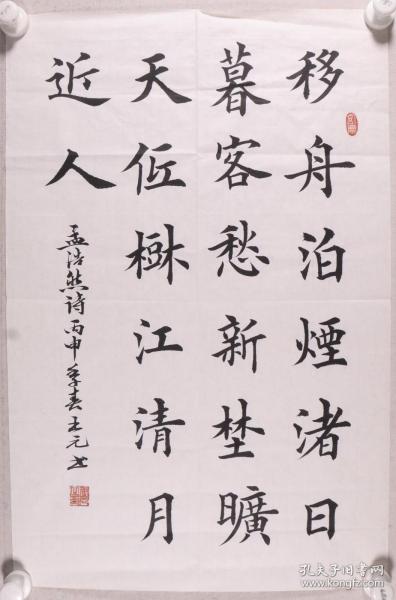 移舟泊煙渚日
暮客愁新埜曠
天仾樹江清月
近人
孟浩然詩丙申季春王元书
孔夫子旧书网
www.kongfz.com